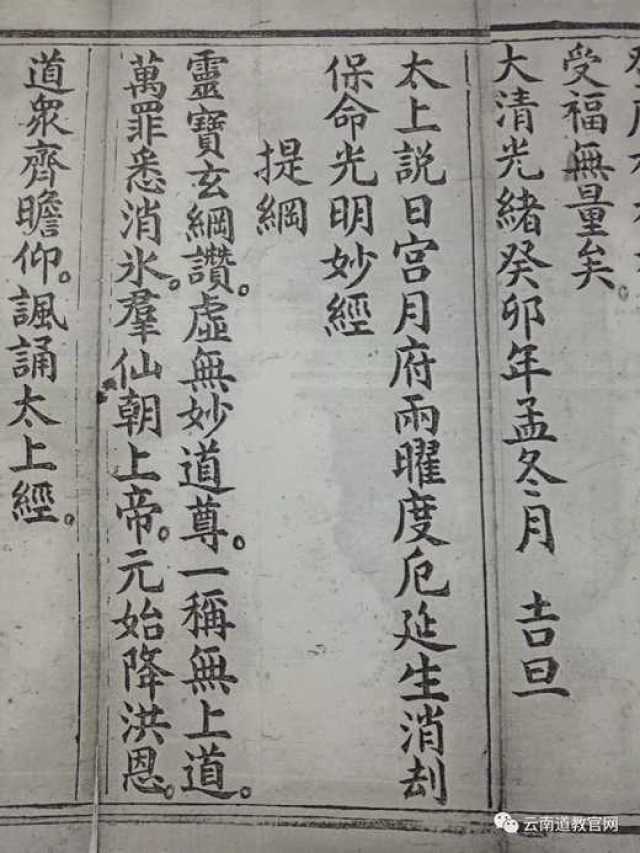 受福無量矣。
大清光緒癸卯年孟冬月 吉旦
太上説日宮月府兩曜度厄延生消刦
保命光明妙經
提綱
靈寶玄綱讚。虛無妙道尊。一稱無上道。
萬罪悉消氷。羣仙朝上帝。元始降洪恩。
道衆齊瞻仰。諷誦太上經。
云南道教官网